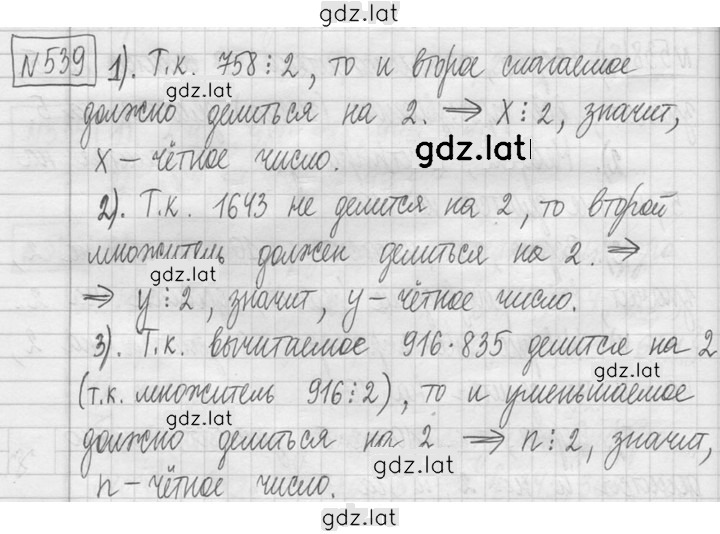 gdz.lat
№539 1). Т.к. 758⋮2, то и второе слагаемое
gdz.lat
должно делиться на 2. ⇒ x⋮2, значит,
gdz.lat
x – чётное число.
2). Т.к. 1643 не делится на 2, то второй
множитель должен делиться на 2. ⇒
gdz.lat
⇒ y⋮2, значит, y – чётное число.
3). Т.к. вычитаемое 916·835 делится на 2
gdz.lat
(т.к. множитель 916⋮2), то и уменьшаемое
gdz.lat
должно делиться на 2 ⇒ n⋮2, значит,
gdz.lat
n – чётное число.
gdz.lat